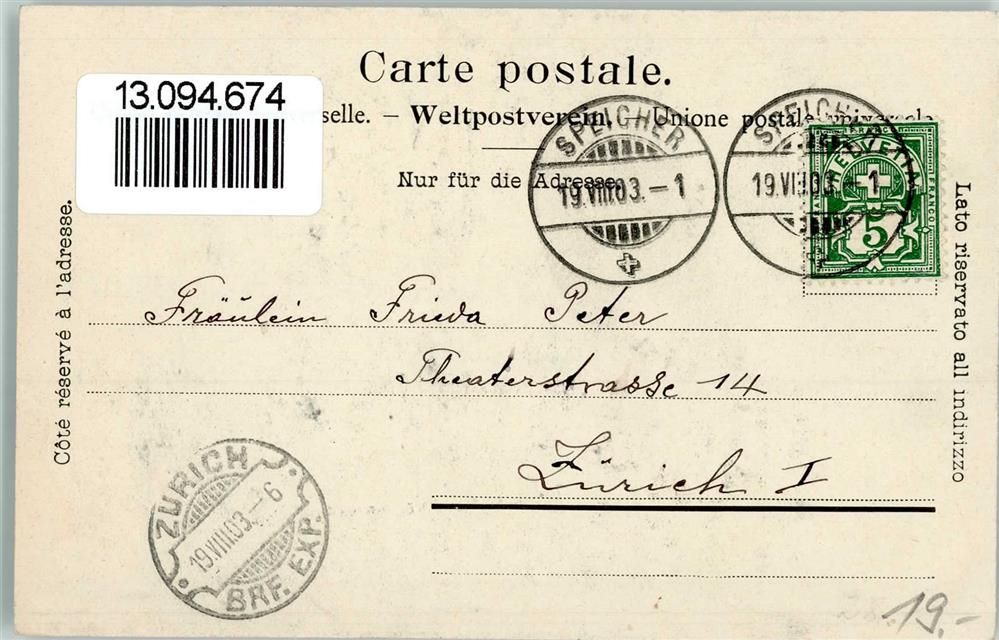 Carte postale.
13.094.674
selle. – Weltpostverein. Unione postale
Nur für die Adresse.
SPEICHER
19.VIII.03.–1
SPEICHER
19.VIII.03.–1
HELVETIA
FRANCO
FRANCO
5
Côté réservé à l'adresse.
Lato riservato all indirizzo
Fräulein Frieda Peter
Theaterstrasse 14
Zürich I
ZÜRICH
19.VIII.03.–6
BRF. EXP.
19.-